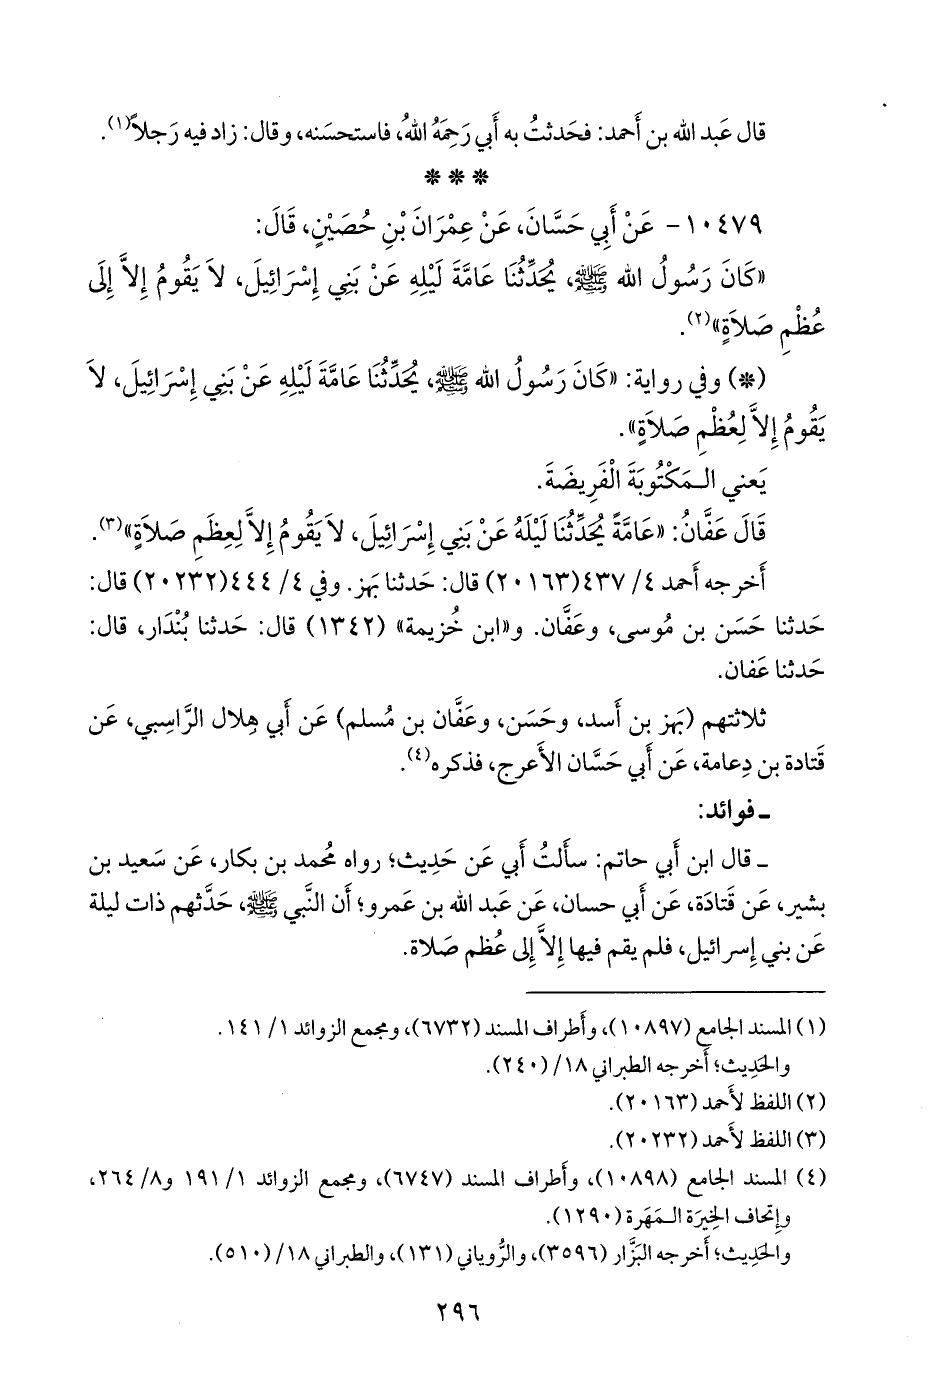 قال عَبد الله بن أَحمد: فحَدثتُ به أَبي رَحِمَهُ اللهُ، فاستحسَنه، وقال: زاد فيه رَجلاً(١).
* * *
١٠٤٧٩- عَنْ أَبِي حَسَّانَ، عَنْ عِمْرَانَ بْنِ حُصَيْنٍ، قَالَ:
«كَانَ رَسُولُ الله ﷺ، يُحَدِّثُنَا عَامَّةَ لَيْلِهِ عَنْ بَنِي إِسْرَائِيلَ، لاَ يَقُومُ إِلاَّ إِلَى
عُظْمِ صَلاَةٍ»(٢).
(*) وفي رواية: «كَانَ رَسُولُ الله ﷺ، يُحَدِّثُنَا عَامَّةَ لَيْلِهِ عَنْ بَنِي إِسْرَائِيلَ، لاَ
يَقُومُ إِلاَّ لِعُظْمِ صَلاَةٍ».
يَعني الـمَكْتُوبَةَ الْفَرِيضَةَ.
قَالَ عَفَّانُ: «عَامَّةً يُحَدِّثُنَا لَيْلَهُ عَنْ بَنِي إِسْرَائِيلَ، لاَ يَقُومُ إِلاَّ لِعِظَمِ صَلاَةٍ»(٣).
أَخرجه أَحمد ٤/ ٤٣٧(٢٠١٦٣) قال: حَدثنا بَهز. وفي ٤/ ٤٤٤(٢٠٢٣٢) قال:
حَدثنا حَسَن بن مُوسى، وعَفَّان. و«ابن خُزيمة» (١٣٤٢) قال: حَدثنا بُنْدَار، قال:
حَدثنا عَفان.
ثلاثتهم (بَهز بن أَسد، وحَسَن، وعَفَّان بن مُسلم) عَن أَبي هِلال الرَّاسِبي، عَن
قَتادة بن دِعامة، عَن أَبي حَسَّان الأَعرج، فذكره(٤).
ـ فوائد:
ـ قال ابن أَبي حاتم: سأَلتُ أَبي عَن حَدِيث؛ رواه مُحمد بن بكار، عَن سَعيد بن
بشير، عَن قَتادَة، عَن أَبي حسان، عَن عَبد الله بن عَمرو؛ أَن النَّبي ﷺ، حَدَّثهم ذات ليلة
عَن بني إِسرائيل، فلم يقم فيها إِلاَّ إِلى عُظم صَلاة.
(١) المسند الجامع (١٠٨٩٧)، وأَطراف المسند (٦٧٣٢)، ومجمع الزوائد ١/ ١٤١.
والحَدِيث؛ أَخرجه الطبراني ١٨/ (٢٤٠).
(٢) اللفظ لأَحمد (٢٠١٦٣).
(٣) اللفظ لأَحمد (٢٠٢٣٢).
(٤) المسند الجامع (١٠٨٩٨)، وأَطراف المسند (٦٧٤٧)، ومجمع الزوائد ١/ ١٩١ و٨/ ٢٦٤،
وإِتحاف الخِيرَة الـمَهَرة (١٢٩٠).
والحَدِيث؛ أَخرجه البَزَّار (٣٥٩٦)، والرُّوياني (١٣١)، والطبراني ١٨/ (٥١٠).
٢٩٦